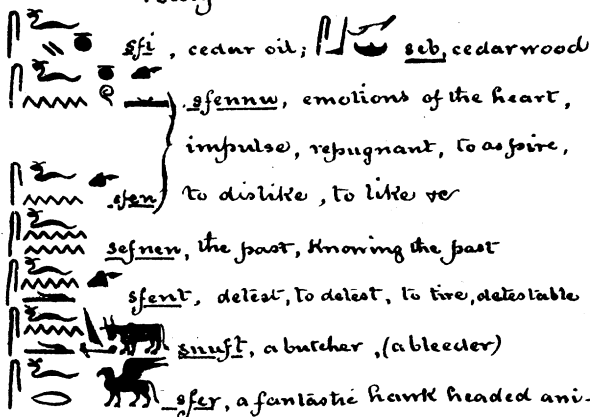 sfi, cedar oil; seb, cedarwood
sfennu, emotions of the heart,
impulse, repugnant, to aspire,
sfen to dislike, to like &c
sefnen, the past, knowing the past
sfent, detest, to detest, to tire, detestable
snuft, a butcher, (a bleeder)
sfer, a fantastic hawk headed ani-